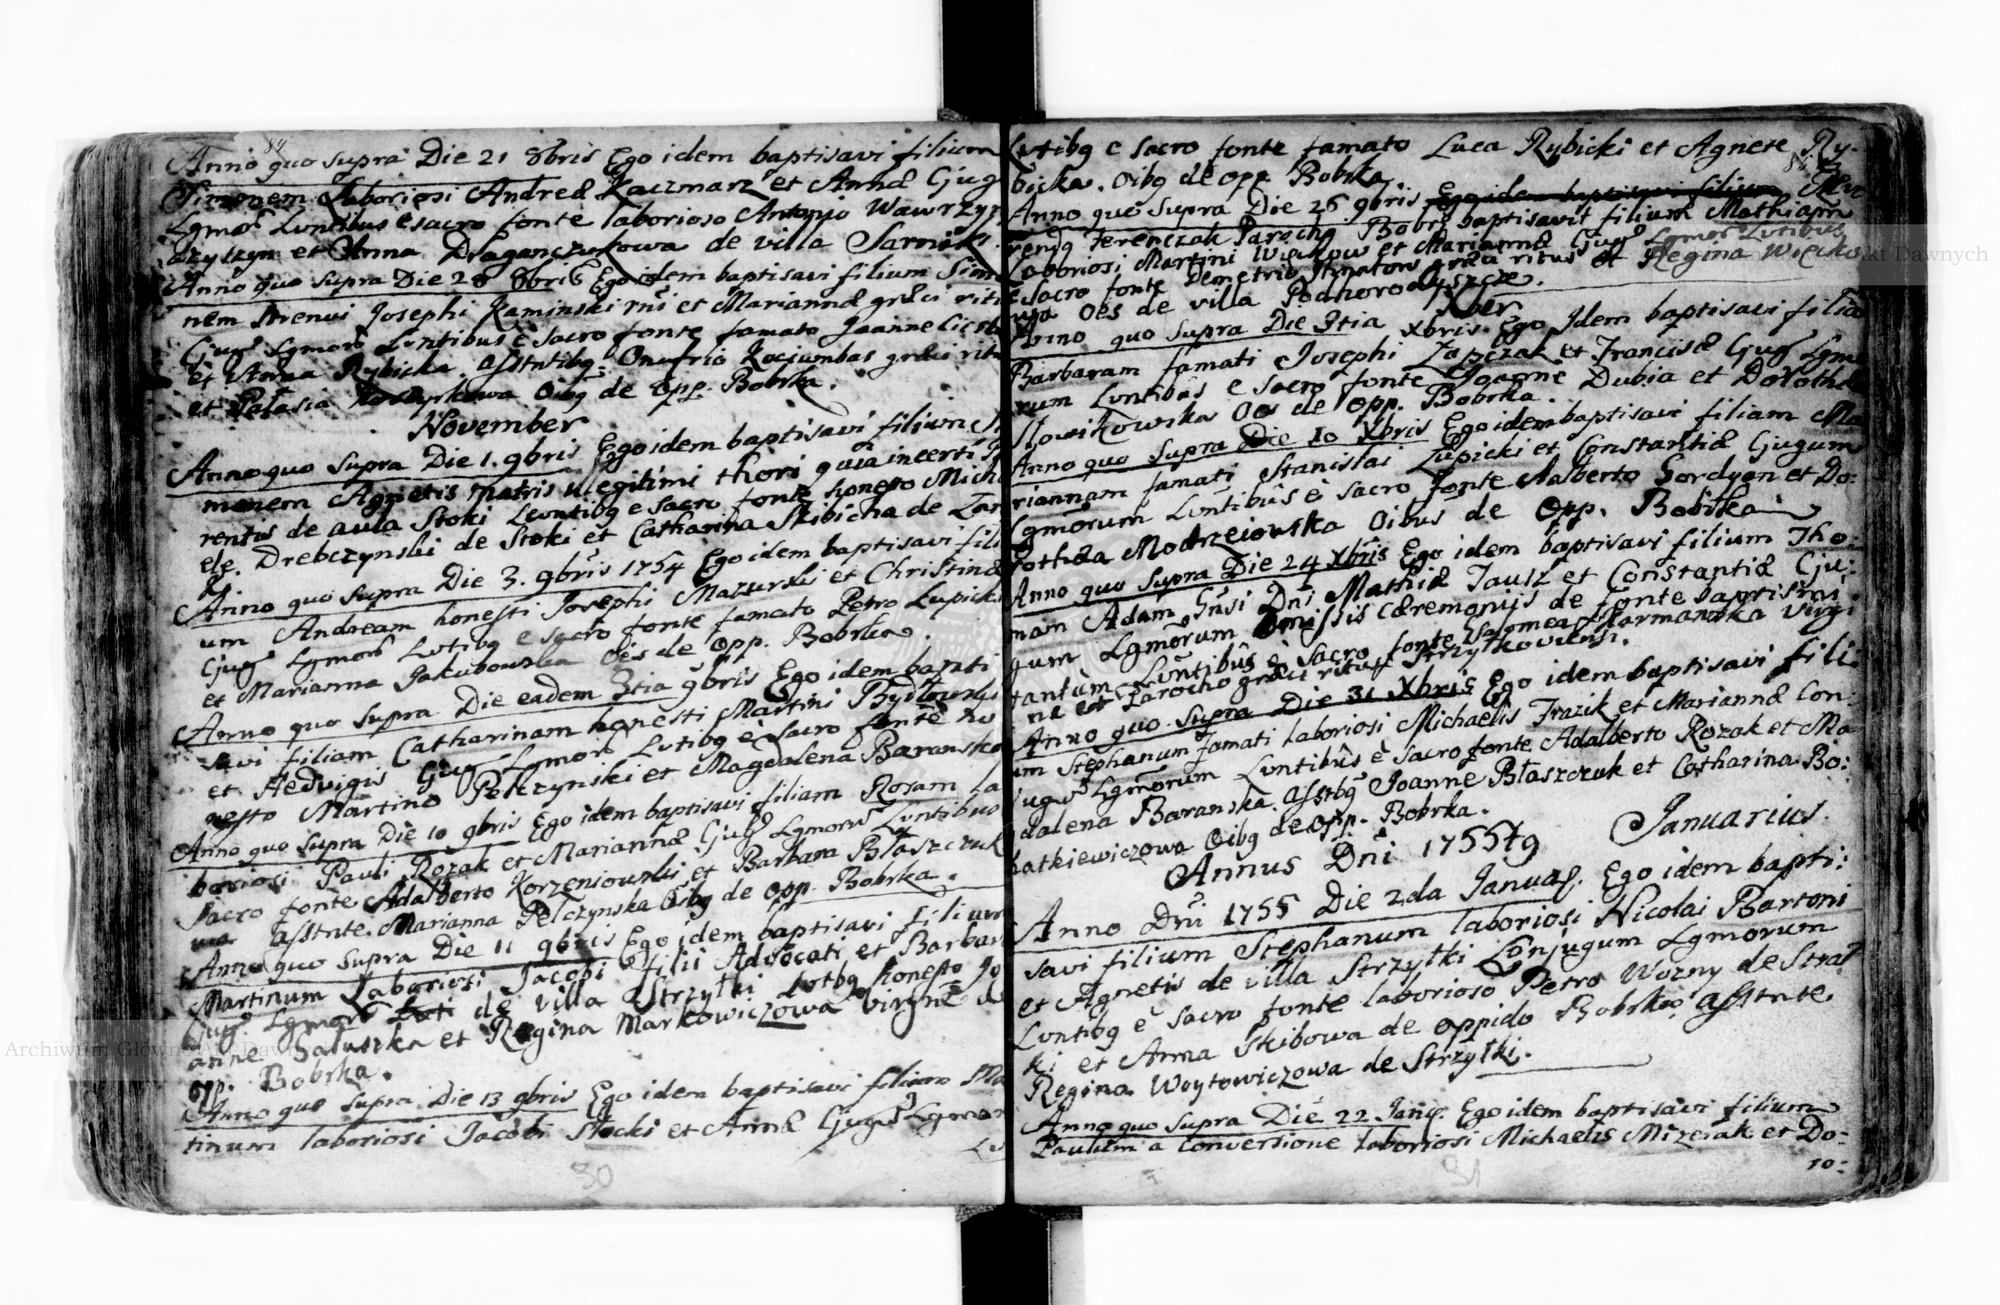 84
Anno quo supra Die 21 8bris Ego idem baptisavi filium
Simonem Laboriosi Andreæ Kaczmarz et Annæ Cjug
Lgmor Lvntibus e sacro fonte laborioso Antonio Wawrzyn
czylzyn et Anna Draganczukowa de villa Sarniki.
Anno quo supra Die 28 8bris Ego idem baptisavi filium Simo
nem strenui Josephi Kaminski et Mariannæ græci ritus
Cjug Lgmor Lvntibus è Sacro fonte famato Joanne
et Anna Rybicka. Asstntibg Onufrio Kociumbas græci ritu
et Palasia Oibg de Opp. Bobrka.
November
Anno quo supra Die 1. 9bris Ego idem baptisavi filium
monem Agnetis matris illegitimi thori quia incerti
rentis de aula Stoki Levntibg e sacro fonte honesto Mich
ele Drebczynski de Stoki et Catharina Skibicha de
Anno quo supra Die 3. 9bris 1754 Ego idem baptisavi fili
um Andream honesti Josephi Mazurski et Christinæ
Cjug Lgmor Lvtibg e sacro fonte famato Petro Lupicki
et Marianna Jakubowska Oés de Opp. Bobrka.
Anno quo supra Die eadem 3tia 9bris Ego idem bapti
savi filiam Catharinam honesti Martini Bydlowski
et Hedvigis Cjug Lgmor Lvtibg è Sacro fonte ho
nesto Martino Pelczynski et Magdalena Baransko
Anno quo supra Die 10 9bris Ego idem baptisavi filiam Rosam la
boriosi Pauli Rozak et Mariannæ Cjug Lgmor Lvntibus
sacro fonte Adalberto Korzeniowski et Barbara Błaszczuk
wa Asstnte Marianna Pelczynska Oibg de Opp. Bobrka.
Anno quo supra Die 11 9bris Ego idem baptisavi filium
Martinum Laboriosi Jacobi filii Advocati et Barbar
Cjug Lgmor de villa Strzyłki Lvtbg honesto Jo
anne Saluszka et Regina Markowiczowa virgne de
Opp. Bobrka.
Anno quo supra Die 13 9bris Ego idem baptisavi filium Ma
tinum laboriosi Jacobi Stocki et Annæ Cjug Lgmor
Lv
30
Lvtibg e sacro fonte famato Luca Rybicki et Agnete Ry-
bicka. Oibg de Opp. Bobrka.
Anno quo supra Die 26 9bris Ego idem baptisavi filium
rendg Ferenczak Parochg Bobr baptisavit filium Mathiam
Laboriosi Martini Więkow et Mariannæ Cjug Lgmor Lvtibus
e Sacro fonte Demetrio græci ritus et Regina Więcko
wa Oés de villa Podhorodyszcze.
Xber
Anno quo supra Die 3tia Xbris Ego Idem baptisavi filia
Barbaram famati Josephi Zapczak et Franciscæ Cjug Lgmo
rum Lvntibus e sacro fonte Joanne Dubia et Dorothe
Słowikowska Oés de Opp. Bobrka.
Anno quo supra Die 10 Xbris Ego idem baptisavi filiam Ma
riannam famati Stanislai Lupicki et Constantiæ Cjugum
Lgmorum Lvntibus è sacro fonte Aalberto Gordyon et Do:
rothea Modrzeiowska Oibus de Opp. Bobrka
Anno quo supra Die 24 Xbris Ego idem baptisavi filium Tho:
mam Adam Gnsi Dni Mathiæ Jausz et Constantiæ Cju:
gum Lgmorum Omissis cæremonijs de fonte baptismi
tantum Lvntibus è Sacro fonte Salomea Karmanska Virgi
ne et Parocho græci ritus Strzyłkoviensi.
Anno quo supra Die 31 Xbris Ego idem baptisavi fili:
um Stephanum famati laboriosi Michaelis Frazik et Mariannæ Con:
jugum Lgmorum Lvntibus è Sacro fonte Adalberto Rozak et Ma
dalena Baranska. Asstbg Joanne Błaszczuk et Catharina Bo:
hatkiewiczowa Oibg de Opp. Bobrka.
Annus Dni 1755tg Januarius.
Anno Dni 1755 Die 2da Januar. Ego idem bapti:
savi filium Stephanum laboriosi Nicolai Bartoni
et Agnetis de villa Strzyłki Conjugum Lgmorum
Lvntibg è sacro fonte laborioso Petro Wozny de Strzył
ki et Anna Skibowa de oppido Bobrka, Asstnte
Regina Woytowiczowa de Strzyłki.
Anno quo supra Die 22 Janu. Ego idem baptisavi filium
Paulum a Conversione laboriosi Michaelis Mizerak et Do:
ro:
31
Archiwum Główne Akt Dawnych
Akt Dawnych